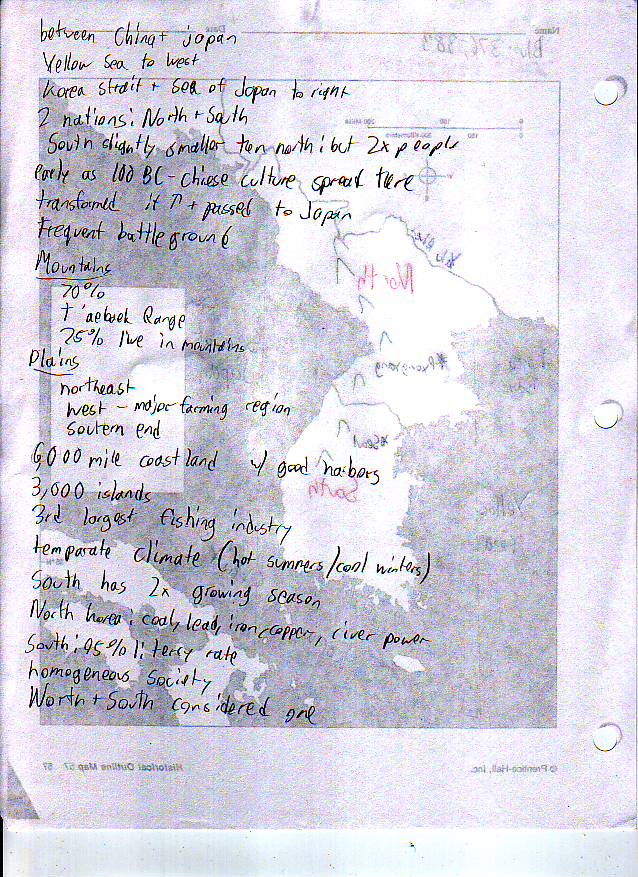 between China + japan
Yellow Sea to west
Korea strait + Sea of Japan to right
2 nations: North + South
South slightly smaller ten north; but 2x people
early as 100 BC - Chinese culture spread there
transformed it + passed to Japan
frequent battle ground
Mountains
70%
T'aebaek Range
25% live in mountains
Plains
northeast
west - major farming region
southern end
6,000 mile coast land w/ good harbors
3,000 islands
3rd largest fishing industry
temparate climate (hot summers/cool winters)
South has 2x growing season
North Korea: coal, lead, iron, copper, river power
South: 95% litercy rate
homogeneous society
North + South considered one
Name
North
Pyongyang
Seoul
South
Yellow
© Prentice-Hall, Inc.
Historical Outline Map 57 57